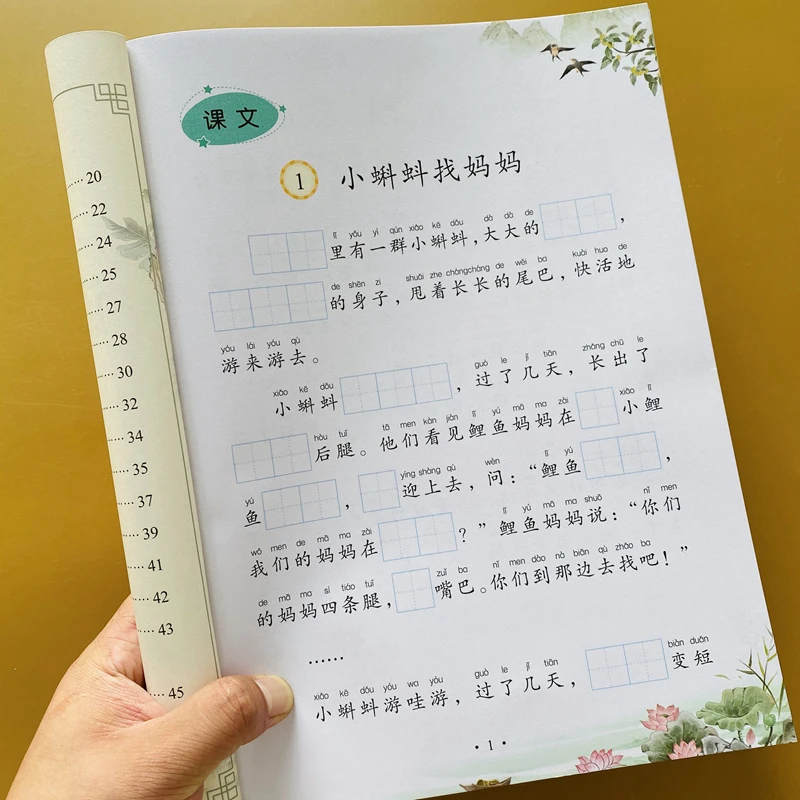 20
22
24
25
27
28
30
32
34
35
37
39
41
42
43
45
课文
1 小蝌蚪找妈妈
lǐ yǒu yì qún xiǎo kē dǒu dà dà de
里有一群小蝌蚪，大大的，
de shēn zi shuǎi zhe chángcháng de wěi ba kuài huo de
的身子，甩着长长的尾巴，快活地
yóu lái yóu qù
游来游去。
xiǎo kē dǒu guò le jǐ tiān zhǎng chū le
小蝌蚪，过了几天，长出了
hòu tuǐ tā men kàn jiàn lǐ yú mā ma zài xiǎo lǐ
后腿。他们看见鲤鱼妈妈在小鲤
yú yíng shàng qù wèn lǐ yú
鱼，迎上去，问：“鲤鱼，
wǒ men de mā ma zài lǐ yú mā ma shuō nǐ men
我们的妈妈在？”鲤鱼妈妈说：“你们
de mā ma sì tiáo tuǐ zuǐ ba nǐ men dào nà biān qù zhǎo ba
的妈妈四条腿，嘴巴。你们到那边去找吧！”
……
xiǎo kē dǒu yóu wa yóu guò le jǐ tiān biàn duǎn
小蝌蚪游哇游，过了几天，变短
·1·